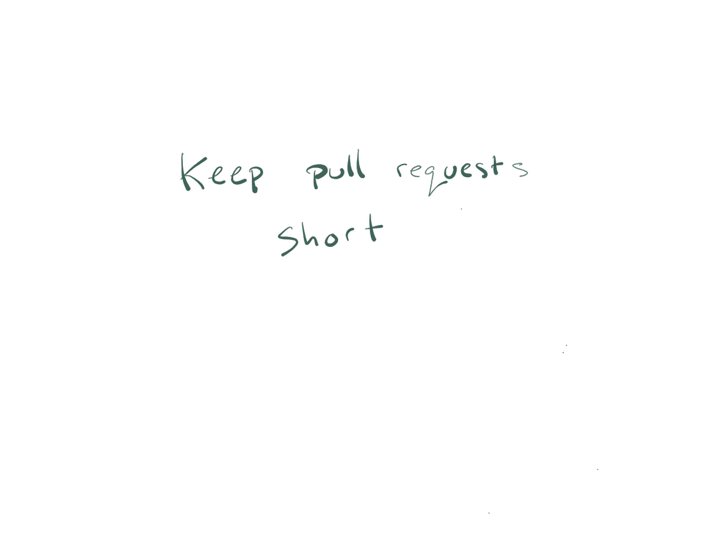 Keep pull requests
short